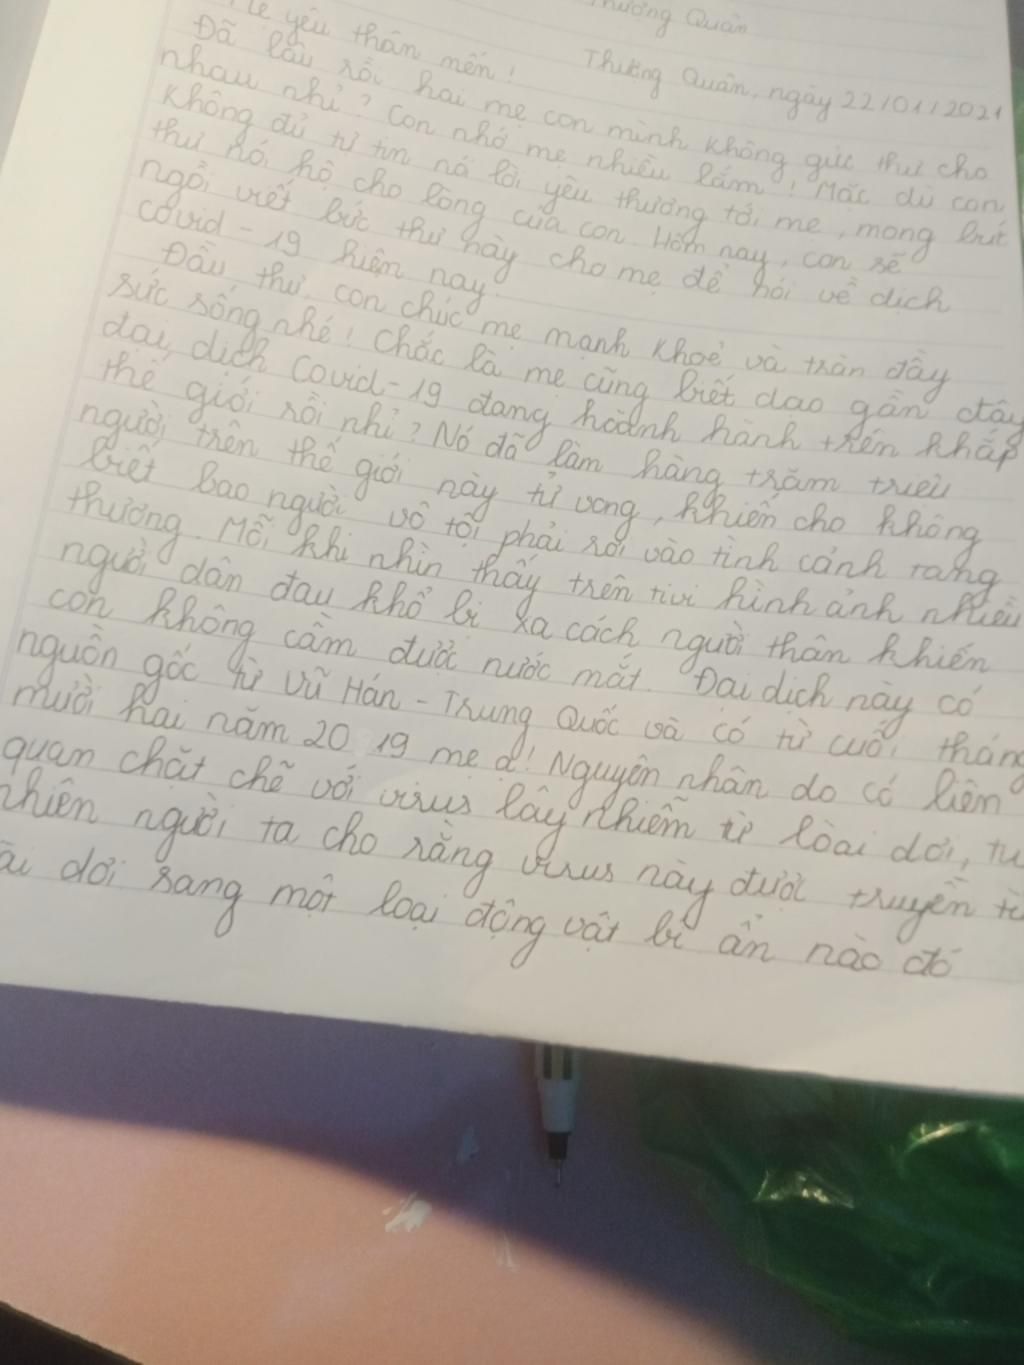 Thượng Quân
Thượng Quân, ngày 22/01/2021
yêu thân mến!
Đã lâu rồi hai mẹ con mình không gửi thư cho
nhau nhỉ? Con nhớ mẹ nhiều lắm! Mặc dù con
không đủ tự tin nói lời yêu thương tới mẹ, mong bức
thư nói hộ cho lòng của con. Hôm nay, con sẽ
ngồi viết bức thư này cho mẹ để nói về dịch
covid-19 hiện nay.
Đầu thư, con chúc mẹ mạnh khoẻ và tràn đầy
sức sống nhé! Chắc là mẹ cũng biết dạo gần đây
đại dịch Covid-19 đang hoành hành trên khắp
thế giới rồi nhỉ? Nó đã làm hàng trăm triệu
người trên thế giới này tử vong, khiến cho không
biết bao người vô tội phải rơi vào tình cảnh tang
thương. Mỗi khi nhìn thấy trên tivi hình ảnh nhiều
người dân đau khổ bị xa cách người thân khiến
con không cầm được nước mắt. Đại dịch này có
nguồn gốc từ Vũ Hán - Trung Quốc và có từ cuối tháng
mười hai năm 2019 mẹ ạ! Nguyên nhân do có liên
quan chặt chẽ với virus lây nhiễm từ loài dơi, tuy
nhiên người ta cho rằng virus này được truyền từ
dơi sang một loại động vật bí ẩn nào đó